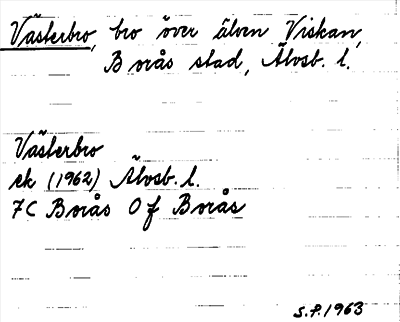 Västerbro, bro över älven Viskan,
Borås stad, Älvsb. l.
Västerbro
ek (1962) Älvsb. l.
7C Borås Of Borås
S.P. 1963